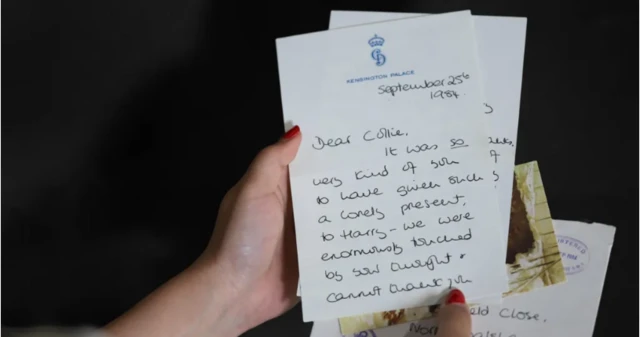 KENSINGTON PALACE
September 25th
1984.
Dear Collie,
It was so
very kind of you
to have given such
a lovely present,
to Harry - we were
enormously touched
by your thought &
cannot thank you
eld Close,